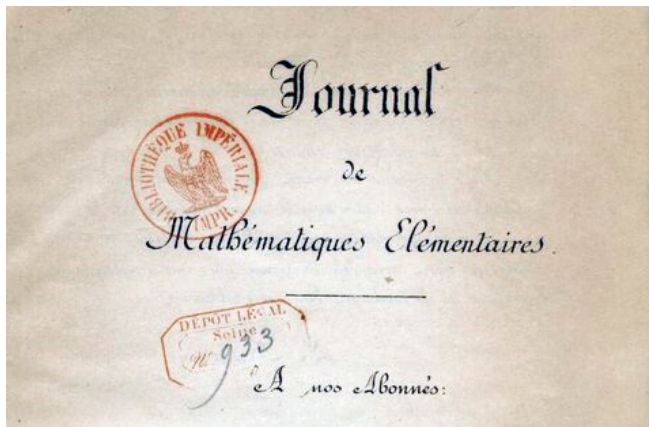 Journal
BIBLIOTHÈQUE IMPÉRIALE
IMPR.
de
Mathématiques Elémentaires.
DÉPOT LÉGAL
Seine
No 933
A nos Abonnés: